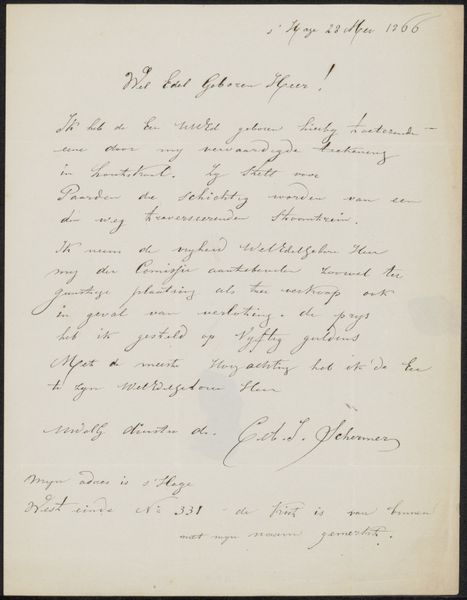 s' Hage 28 Mei 1866
Wel Edel Geboren Heer!
Ik heb de Eer UWEd geboren hierby
eene door my vervaardigde teekening
in houtskool. Zy stelt voor
Paarden die schichtig worden van een
den weg traverseerenden Stoomtrein.
Ik neem de vryheid WelEdelgeboren Heer
my der Comissie aantebevelen zoowel ter
gunstige plaatsing als ter verkoop ook
in geval van verloting. de prys
heb ik gesteld op Vyftig guldens
Met de meeste Hoogachting heb ik de Eer
te zyn WelEdelgeboren Heer
UWEdG dienstw. dr. C. A. J. Schermer
Myn adres is s' Hage
West einde No 331 - de kist is van binnen
met myn naam gemerkt.